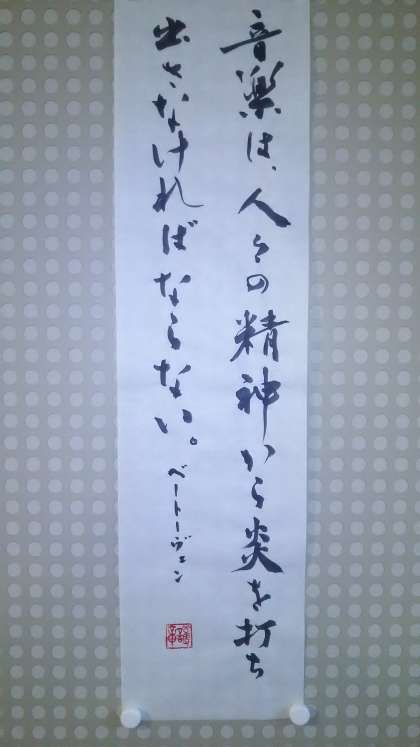 音楽は、人々の精神から炎を打ち
出さなければならない。
ベートーヴェン